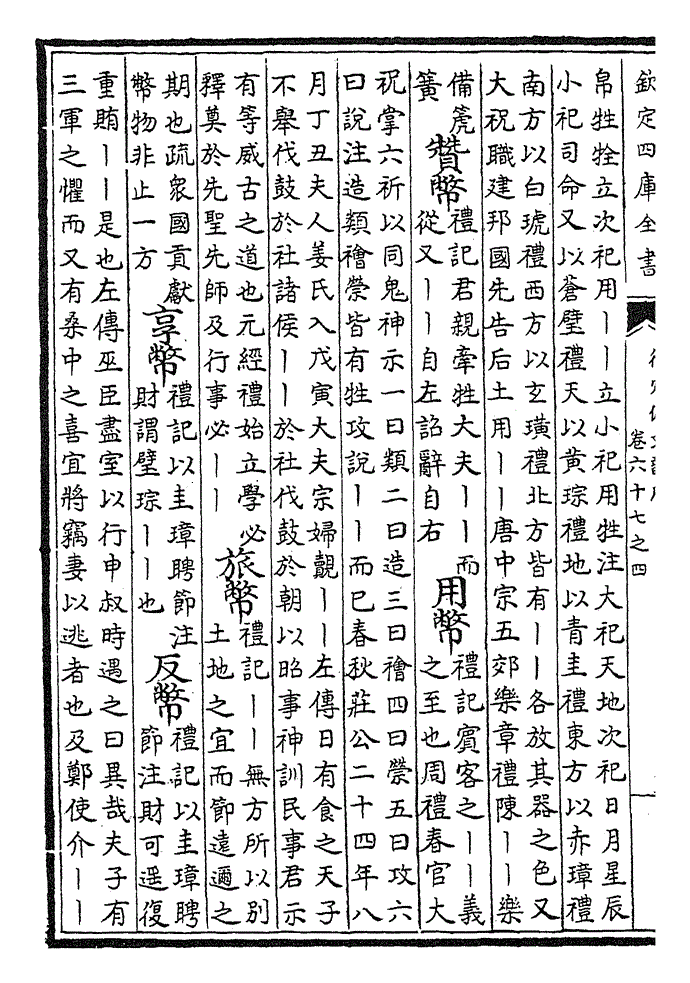 欽定四庫全書
卷六十七之四
帛牲牷立次祀用丨丨立小祀用牲注大祀天地次祀日月星辰
小祀司命又以蒼璧禮天以黃琮禮地以青圭禮東方以赤璋禮
南方以白琥禮西方以玄璜禮北方皆有丨丨各放其器之色又
大祝職建邦國先告后土用丨丨唐中宗五郊樂章禮陳丨丨樂
備箎
簧
贊幣
禮記君親牽牲大夫丨丨而
從又丨丨自左詔辭自右
用幣
禮記賓客之丨丨義
之至也周禮春官大
祝掌六祈以同鬼神示一曰類二曰造三曰禬四曰禜五曰攻六
曰說注造類禬禜皆有牲攻說丨丨而已春秋莊公二十四年八
月丁丑夫人姜氏入戊寅大夫宗婦覿丨丨左傳日有食之天子
不舉伐鼓於社諸侯丨丨於社伐鼓於朝以昭事神訓民事君示
有等威古之道也元經禮始立學必
釋奠於先聖先師及行事必丨丨
旅幣
禮記丨丨無方所以別
土地之宜而節遠邇之
期也疏衆國貢獻
幣物非止一方
享幣
禮記以圭璋聘節注
財謂璧琮丨丨也
反幣
禮記以圭璋聘
節注財可遥復
重賄丨丨是也左傳巫臣盡室以行申叔時遇之曰異哉夫子有
三軍之懼而又有桑中之喜宜將竊妻以逃者也及鄭使介丨丨